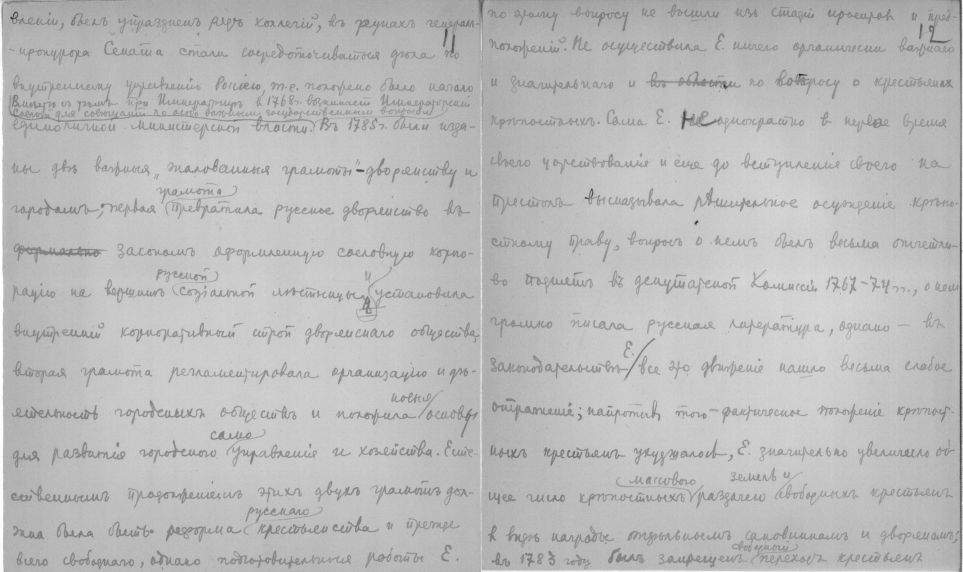 влении, былъ упразднен рядъ коллегій, въ рукахъ генерал-
11
-прокурора Сената стали сосредоточиваться дѣла по
внутреннему управленію Россіею, т.е. положено было начало
Вмѣстѣ съ тѣмъ при Императрицѣ в 1768г. возникаетъ Императорскій
Совѣтъ для совѣщанія по особо важнымъ государственнымъ вопросамъ
единоличной министерской власти. Въ 1785г. были изда-
ны двѣ важныя „жалованныя грамоты"-дворянству и
грамота
городамъ; первая превратила русское дворянство въ
формально закономъ оформленную сословную корпо-
русской и
рацію на вершинѣ соціальной лѣстницы установила
внутренній корпоративный строй дворянскаго общества,
вторая грамота регламентировала организацію и дѣ-
новыя
ятельность городскихъ обществъ и положила основы
само
для развитія городского управленія и хозяйства. Есте-
ственнымъ продолженіемъ этихъ двухъ грамотъ дол-
русскаго
жна была быть реформа крестьянства и прежде
всего свободнаго, однако подготовительныя работы Е.
по этому вопросу не вышли изъ стадіи проектов и пред-
12
положеній. Не осуществила Е. ничего органически важнаго
и значительнаго и въ области по вопросу о крестьянах
крѣпостныхъ. Сама Е. неоднократно в первое время
своего царствованія и еще до вступленія своего на
престолъ высказывала рѣшительное осужденіе крѣпо-
стному праву, вопросъ о немъ былъ весьма отчетли-
во поднятъ въ депутатской Комисіи 1767-74гг., о нем
громко писала русская литература, однако — въ
Е.
законодательствѣ все это движеніе нашло весьма слабое
отраженіе; напротив, того-фактическое положеніе крѣпост-
ныхъ крестьянъ ухудшалось, Е. значительно увеличила об-
массового земель и
щее число крѣпостныхъ раздачею свободныхъ крестьянъ
в видѣ награды отдѣльнымъ сановникам и дворянамъ;
свободный
въ 1783 году былъ запрещен переходъ крестьянъ